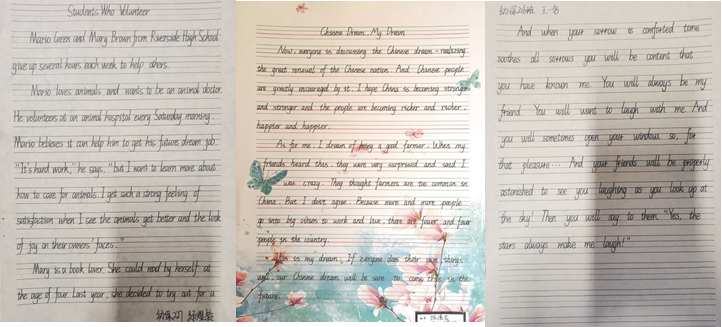 Students Who Volunteer
Mario Green and Mary Brown from Riverside High School
give up several hours each week to help others.
Mario loves animals and wants to be an animal doctor.
He volunteers at an animal hospital every Saturday morning.
Mario believes it can help him to get his future dream job.
"It's hard work," he says, "but I want to learn more about
how to care for animals. I get such a strong feeling of
satisfaction when I see the animals get better and the look
of joy on their owners' faces..."
Mary is a book lover. She could read by herself at
the age of four. Last year, she decided to try out for a
Chinese Dream, My Dream
Now, everyone is discussing the Chinese dream - realizing
the great renewal of the Chinese nation. And Chinese people
are greatly encouraged by it. I hope China is becoming stronger
and stronger and the people are becoming richer and richer,
happier and happier.
As for me, I dream of being a good farmer. When my
friends heard this, they were very surprised and said I
was crazy. They thought farmers are too common in
China. But I don't agree. Because more and more people
go into big cities to work and love, there are fewer and fewer
people in the country.
It is my dream. If everyone does their own things
well, our Chinese dream will be sure to come true in the
future.
And when your sorrow is comforted time
soothes all sorrows you will be content that
you have known me. You will always be my
friend. You will want to laugh with me. And
you will sometimes open your window so, for
that pleasure... And your friends will be properly
astonished to see you laughing as you look up at
the sky! Then you will say to them "Yes, the
stars always make me laugh!"